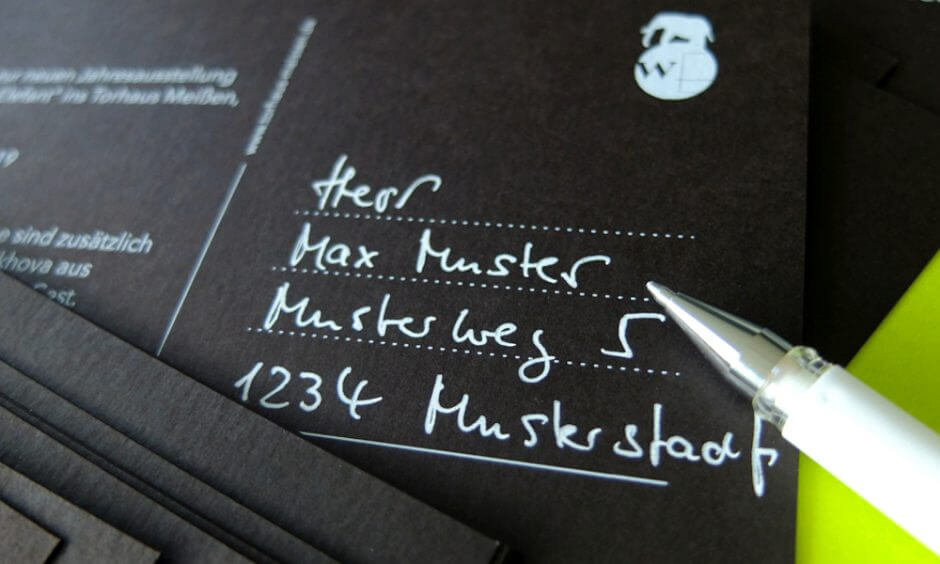 zur neuen Jahresausstellung
ins Torhaus Meißen,
19
sind zusätzlich
khova aus
Gast.
W
Herr
Max Muster
Musterweg 5
1234 Musterstadt